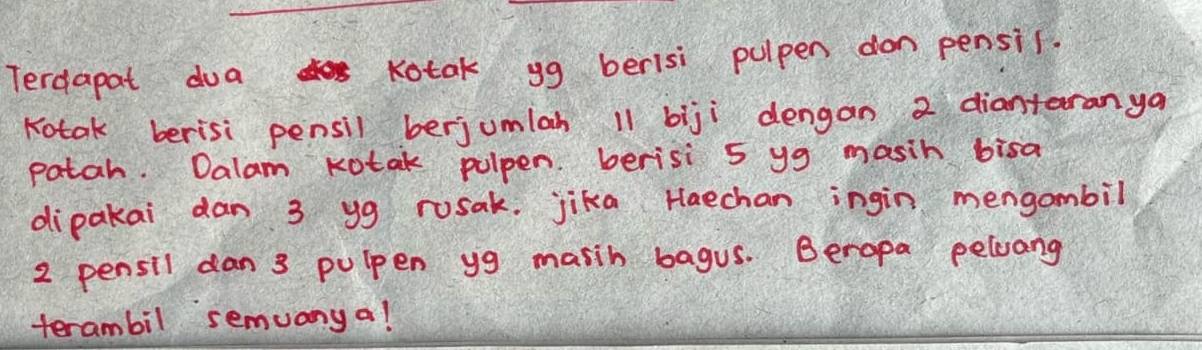 Terdapat dua kotak yg berisi pulpen dan pensil.
Kotak berisi pensil berjumlah 11 biji dengan 2 diantaranya
patah. Dalam kotak pulpen. berisi 5 yg masih bisa
dipakai dan 3 yg rusak. jika Haechan ingin mengambil
2 pensil dan 3 pulpen yg masih bagus. Berapa peluang
terambil semuanya!